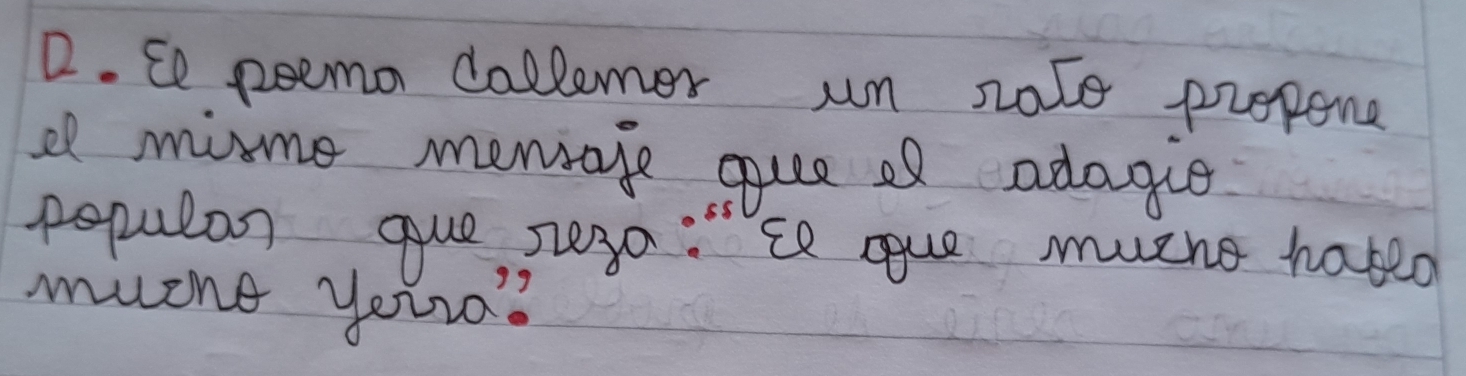 D. El poema Callemos un rato propone
el mismo mensaje que el adagio
popular que reza: "El que mucho habla
mucho yerra".